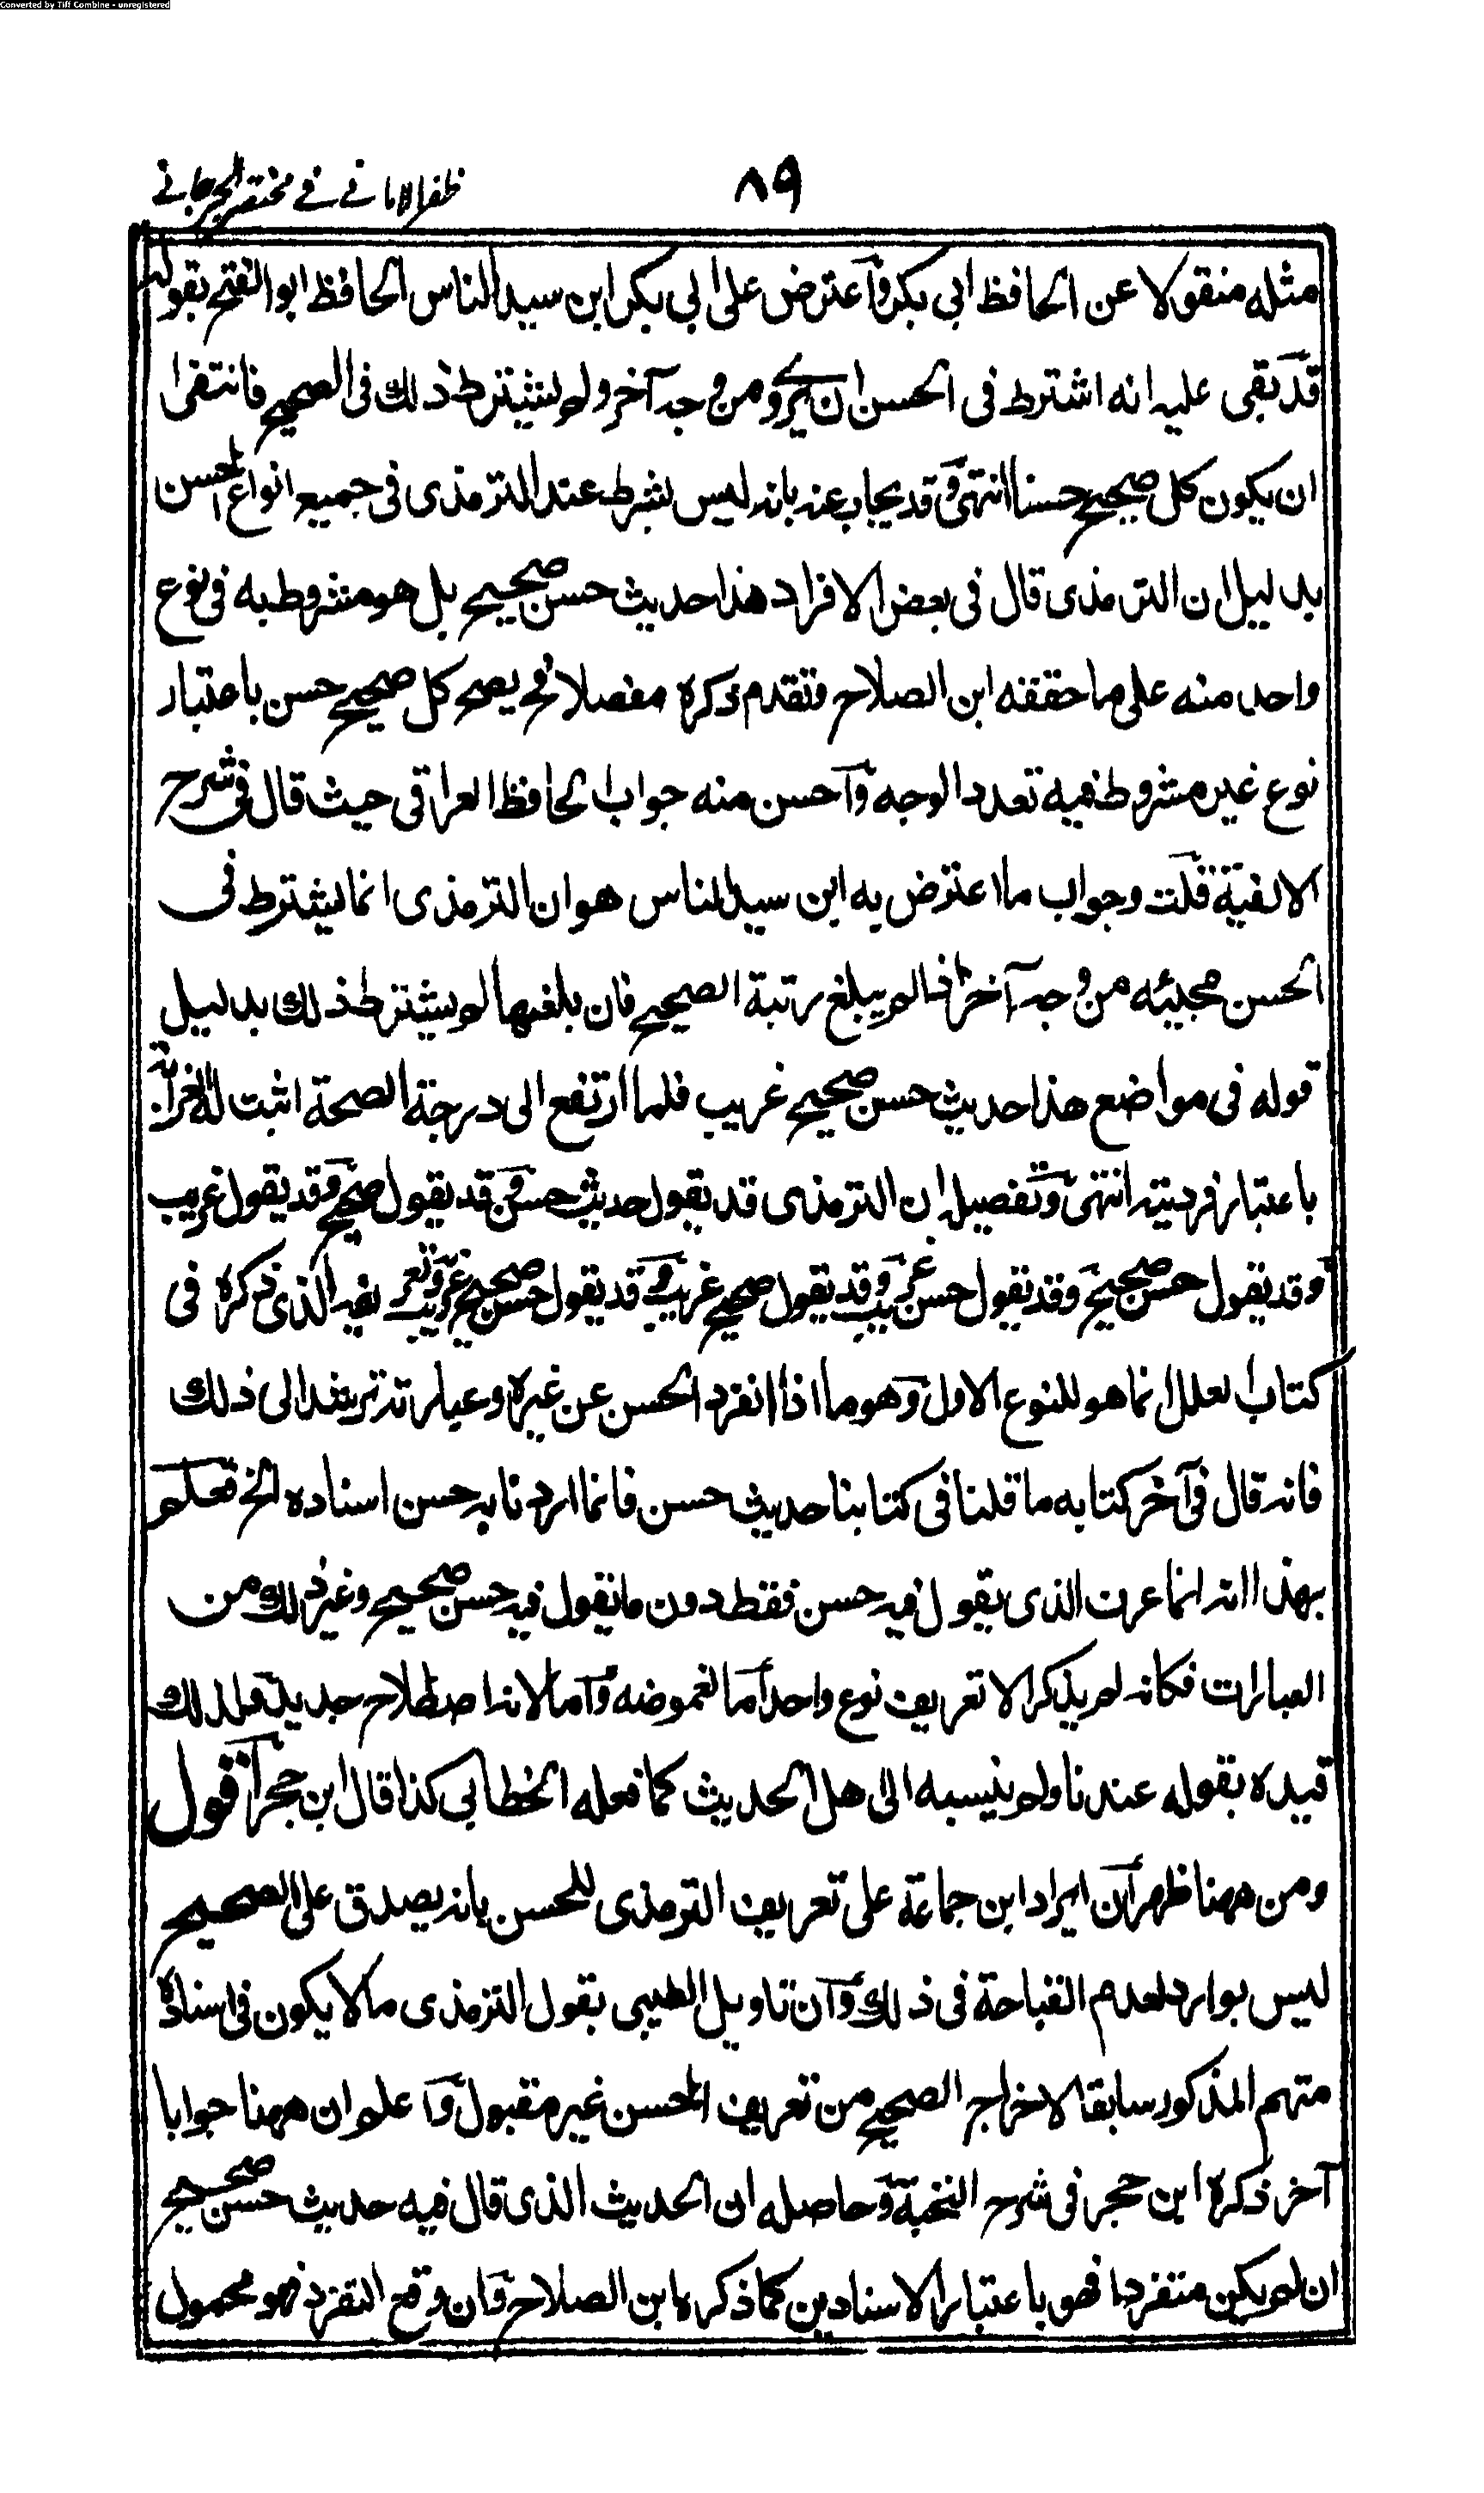 Converted by Tiff Combine - unregistered
ظفر الامانے فے مختصر الجرجانے
۸۹
مثله منقولا عن الحافظ ابى بكر وآعترض على ابى بكر ابن سيد الناس الحافظ ابو الفتح بقوله
قد بقى عليه انه اشترط فى الحسن ان يكرو من وجه آخر ولم يشترط ذلك فى الصحيح فانتفى
ان يكون كل صحيح حسنا انتهى وقد يجاب عنه بانه ليس بشرط عند الترمذى فى جميع انواع الحسن
بدليل ان الترمذى قال فى بعض الافراد هذا حديث حسن صحيح بل هو مشروط به فى نوع
واحد منه على ما حققه ابن الصلاح وتقدم ذكره مفصلا فح يصح كل صحيح حسن باعتبار
نوع غير مشروط فيه تعدد الوجه وآحسن منه جواب الحافظ العراقى حيث قال فى شرح
الالفية قلت وجواب ما اعترض به ابن سيد الناس هو ان الترمذى انما يشترط فى
الحسن مجيئه من وجه آخر اذا لم يبلغ رتبة الصحيح فان بلغها لم يشترط ذلك بدليل
قوله فى مواضع هذا حديث حسن صحيح غريب فلما ارتفع الى درجة الصحة اثبت له الغرابة
باعتبار فرديته انتهى وتفصيله ان الترمذى قد يقول حديث حسن وقد يقول صحيح وقد يقول غريب
وقد يقول حسن صحيح وقد يقول حسن غريب وقد يقول صحيح غريب وقد يقول حسن صحيح غريب وتعريفه الذى ذكره فى
كتاب العلل انما هو للنوع الاول وهو ما اذا انفرد الحسن عن غيره وعبارته ترشد الى ذلك
فانه قال فى آخر كتابه ما قلنا فى كتابنا حديث حسن فانما اردنا به حسن اسناده الخ فعلم
بهذا انه انما عرف الذى يقول فيه حسن فقط دون ما يقول فيه حسن صحيح وغير ذلك من
العبارات فكانه لم يذكر الا تعريف نوع واحد آما لغموضه وآما لانه اصطلاح جديد ولذلك
قيده بقوله عندنا ولم ينسبه الى اهل الحديث كما فعله الخطابى كذا قال ابن حجر آقول
ومن ههنا ظهر آن ايراد ابن جماعة على تعريف الترمذى للحسن بانه يصدق على الصحيح
ليس بوارد لعدم القباحة فى ذلك وآن تاويل الطيبى بقول الترمذى ما لا يكون فى اسناده
متهم المذكور سابقا لاخراج الصحيح من تعريف الحسن غير مقبول وآعلم ان ههنا جوابا
آخر ذكره ابن حجر فى شرح النخبة وحاصله ان الحديث الذى قال فيه حديث حسن صحيح
ان لم يكن متفردا فهو باعتبار الاسنادين كما ذكره ابن الصلاح وآن وقع التفرد فهو محمول